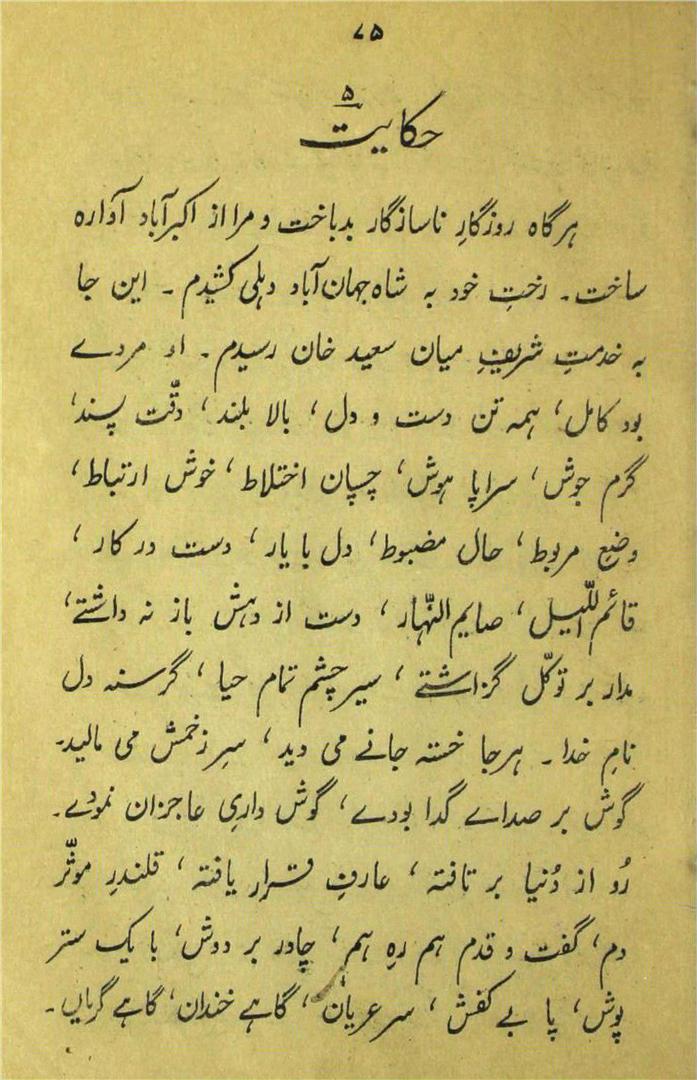 ۷۵
حکایت ۵
ہرگاہ روزگارِ ناسازگار بدباخت و مرا از اکبرآباد آوارہ
ساخت۔ رختِ خود بہ شاہ جہان‌آباد دہلی کشیدم۔ این جا
بہ خدمتِ شریفِ میان سعید خان رسیدم۔ او مردے
بود کامل، ہمہ تن دست و دل، بالا بلند، دقّت پسند،
گرم جوش، سراپا ہوش، چسپان اختلاط، خوش ارتباط،
وضع مربوط، حال مضبوط، دل با یار، دست در کار،
قائم اللّیل، صایم النّہار، دست از دہش باز نہ داشتے،
مدار بر توکّل گزاشتے، سیر چشم تمام حیا، گرسنہ دل
نامِ خدا۔ ہرجا خستہ جانے می دید، سرِ زخمش می مالید۔
گوش بر صداے گدا بودے، گوش داریِ عاجزان نمودے۔
رُو از دُنیا بر تافتہ، عارفِ قرار یافتہ، قلندرِ موثّر
دم، گفت و قدم ہم رہِ ہم، چادر بر دوش، با یک ستر
پوش، پا بے کفش، سر عریان، گاہے خندان، گاہے گریاں۔